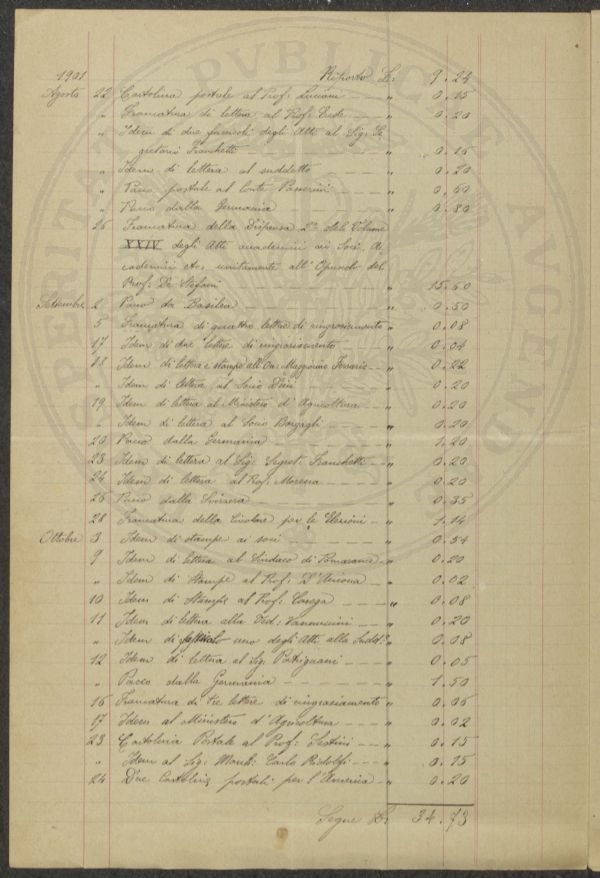 1901 Riporto L: 9.24
Agosto 22 Cartolina postale al Prof: Luciani — — " 0.15
" Francatura di lettera al Prof: — — " 0.20
" Idem di due fascicoli degli Atti al Sig: Se-
gretario Franchetti — — " 0.16
" Idem di lettera al suddetto — — " 0.20
" Pacco postale al Conte Passerini — — " 0.60
" Pacco dalla Germania — — " 0.80
26 Francatura della Dispensa 2ª del Volume
XXIV degli Atti accademici ai Soci Ac-
cademici etc. unitamente all'Opuscolo del
Prof: De Stefani — — " 15.60
Settembre 2 Pacco da Basilea — — " 0.50
5 Francatura di quattro lettere di ringraziamento " 0.08
17 Idem di due lettere di ringraziamento — " 0.04
18 Idem di lettera e stampe all'On: Maggiorino Ferraris — " 0.22
" Idem di lettera al Socio — — " 0.20
19 Idem di lettera al Ministero d'Agricoltura — — " 0.20
" Idem di lettera al Socio Bargagli — — " 0.20
20 Pacco dalla Germania — — " 1.20
23 Idem di lettera al Sig: Segret: Franchetti — " 0.20
24 Idem di lettera al Prof: Morera — — " 0.20
26 Pacco dalla Svizzera — — " 0.35
28 Francatura della Circolare per le Elezioni — " 1.14
Ottobre 3 Idem di stampe ai soci — — " 0.54
9 Idem di lettera al Sindaco di Pomarance — " 0.20
" Idem di Stampe al Prof: D'Ancona — " 0.02
10 Idem di Stampe al Prof: — — " 0.08
11 Idem di lettera alla Ved: Vannuccini — — " 0.20
" Idem di uno degli Atti alla Sudd: " 0.08
12 Idem di lettera al Sig: Patrignani — — " 0.05
" Pacco dalla Germania — — " 1.50
16 Francatura di tre lettere di ringraziamento " 0.06
17 Idem al Ministero d'Agricoltura — — " 0.02
23 Cartolina Postale al Prof: Sestini — — " 0.15
" Idem al Sig: March: Carlo Ridolfi — — " 0.15
24 Due Cartoline postali per l'America — " 0.20
Segue L: 34.73